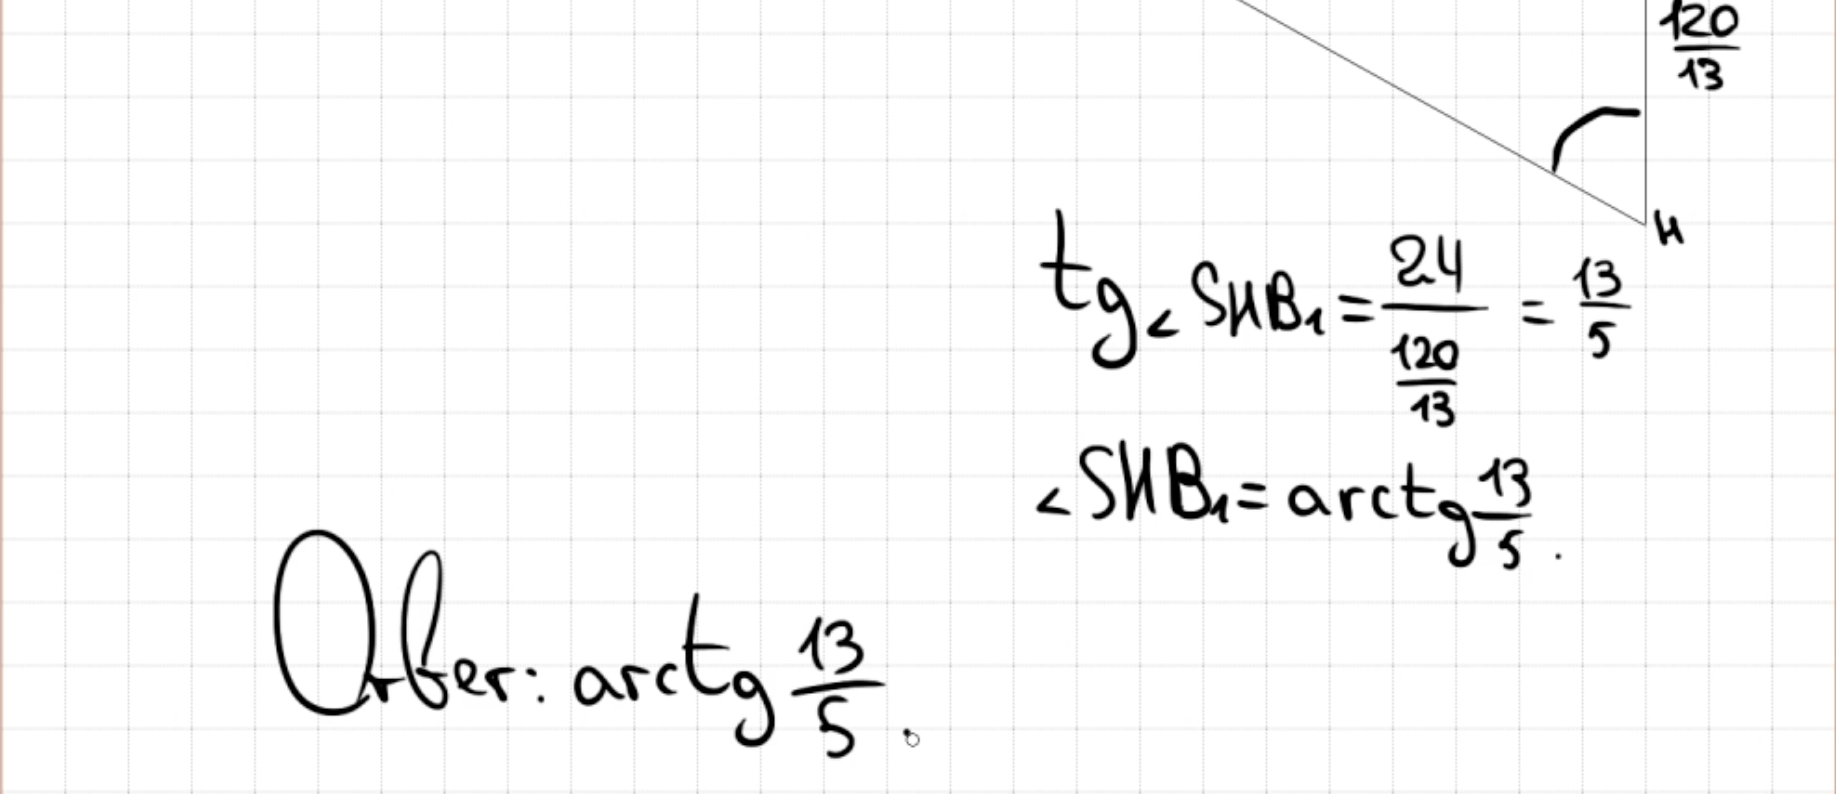 120/13
H
tg∠SHB₁ = 24/(120/13) = 13/5
∠SHB₁ = arctg 13/5.
Ответ: arctg 13/5.